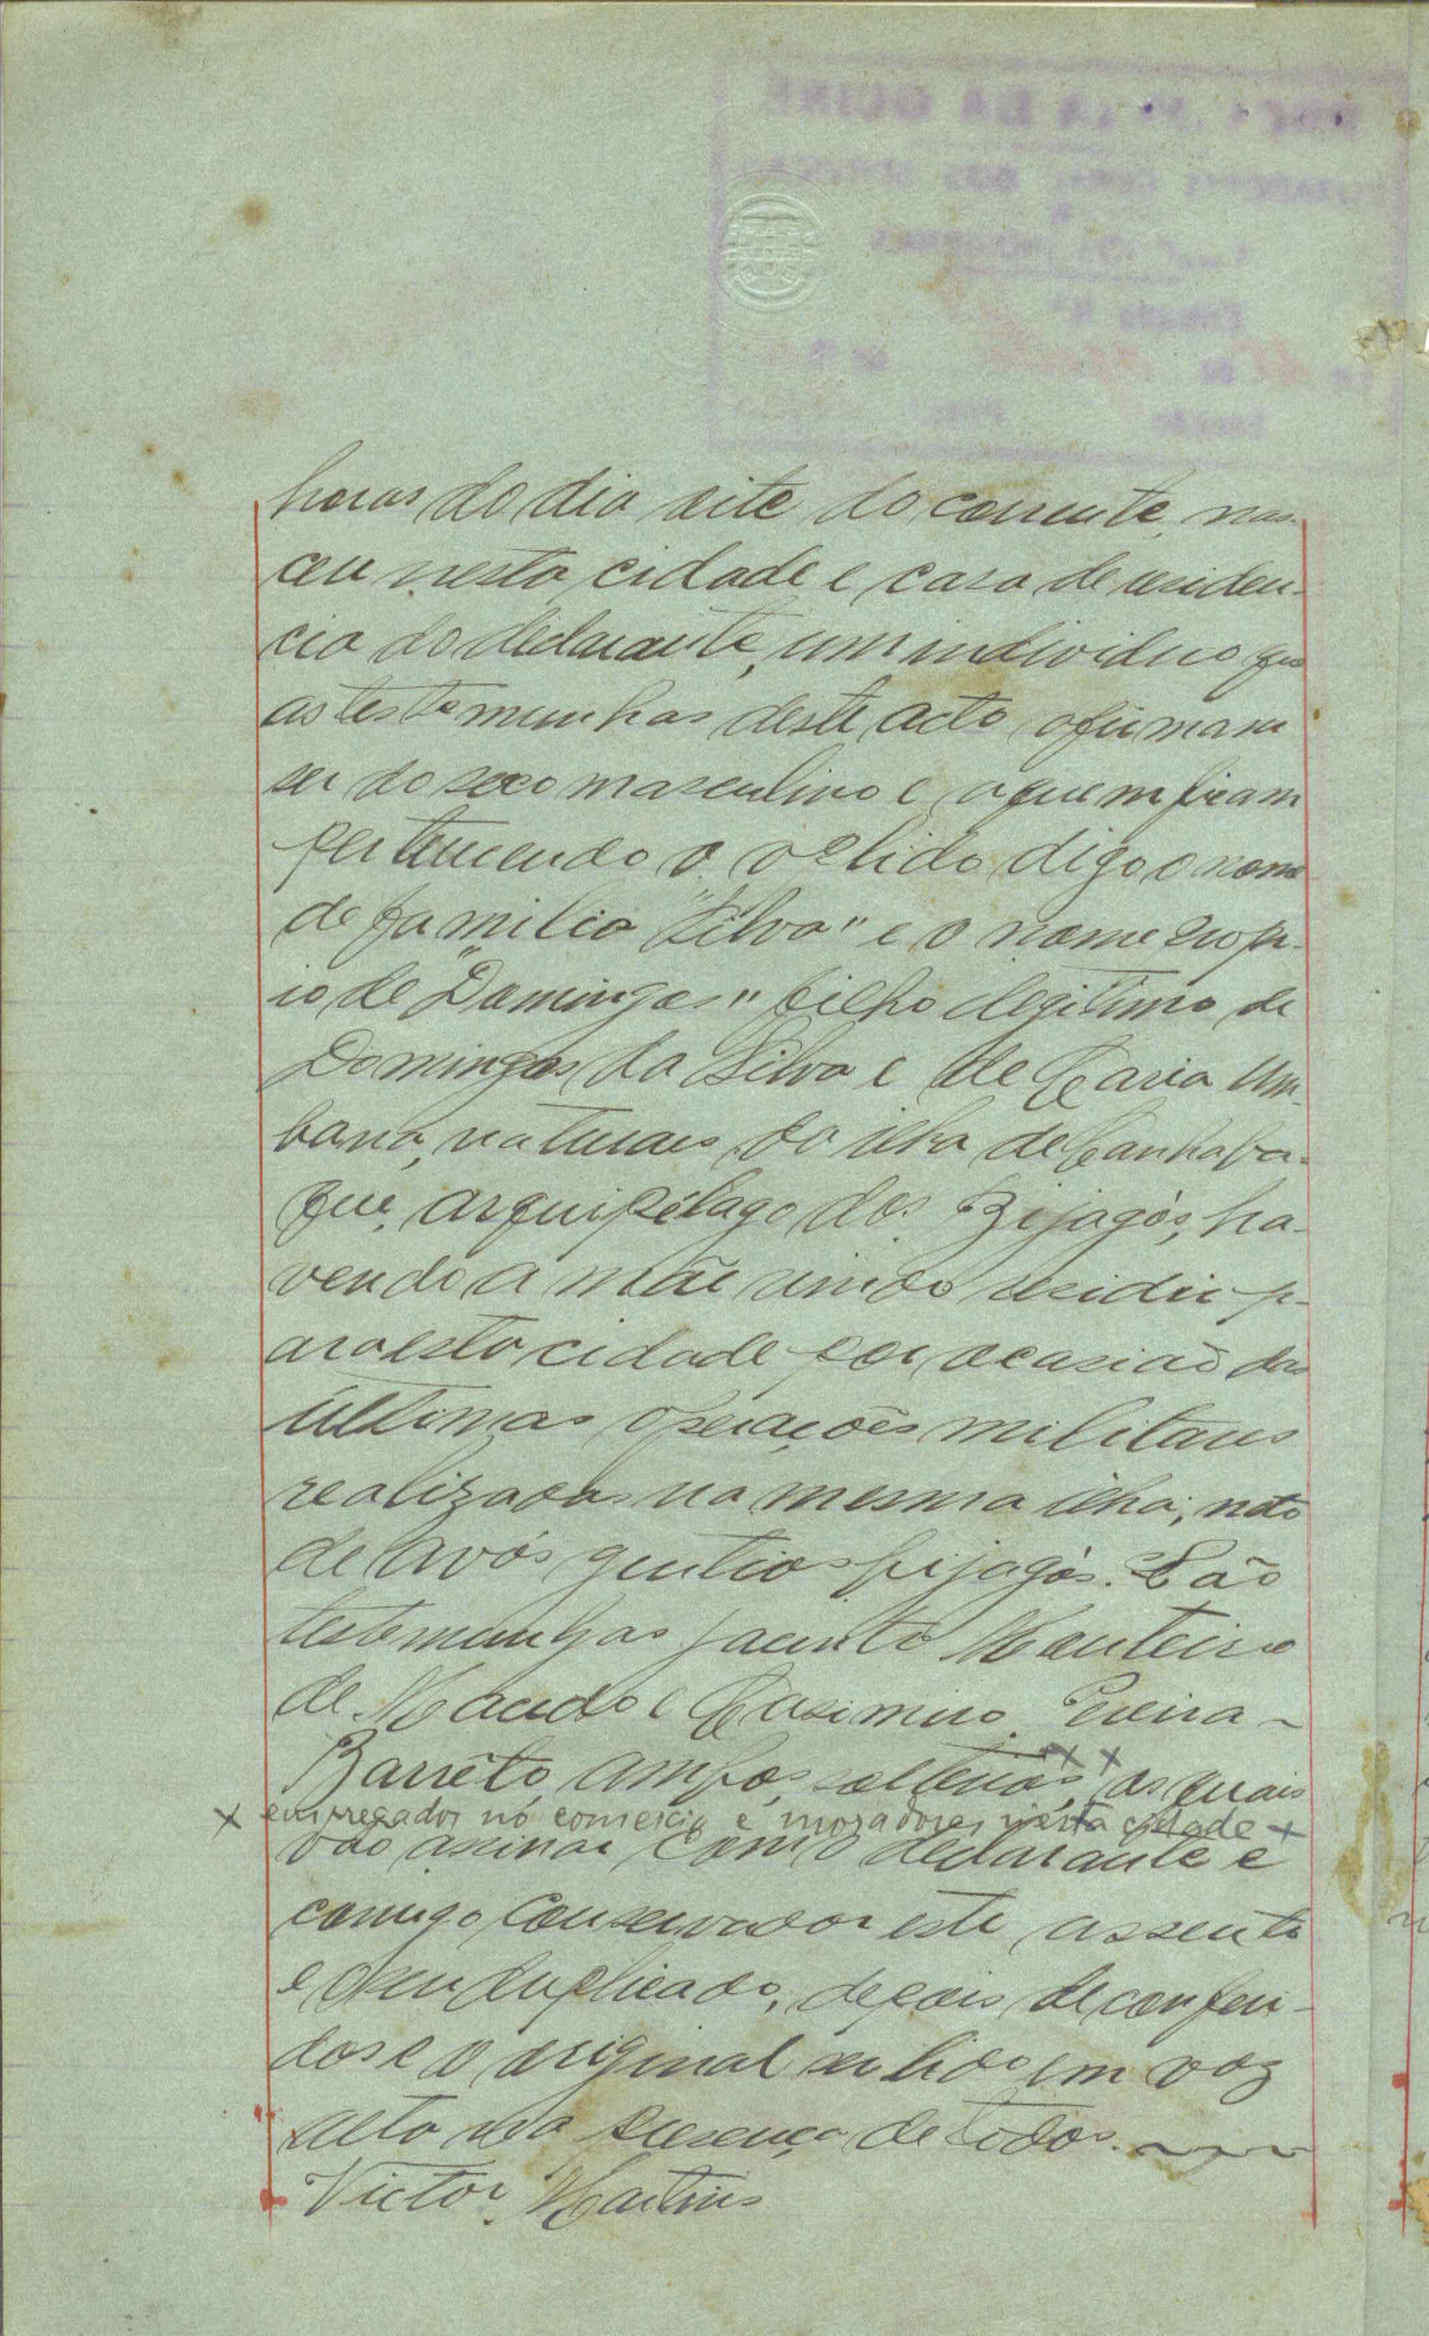 horas do dia sete do corrente, nas-
ceu nesta cidade e casa de residen-
cia do declarante, um individuo que
as testemunhas deste acto afirmam
ser do sexo masculino e a quem ficam
pertencendo o apelido digo o nome
de familia "Silva" e o nome prop-
rio de "Domingos" filho legitimo de
Domingos da Silva e de Maria Um-
bana, naturaes da ilha de Canhaba-
que, arquipélago dos Bijagós, ha-
vendo a mãe vindo residir p-
ara esta cidade por ocasião das
ultimas operações militares
realizadas na mesma ilha; neto
de avós gentios bijagós. São
testemunhas Jacinto Monteiro
de Macedo e Casimiro Pereira ~
Barreto, ambos solteiros, x x os quais
x empregados no comercio e moradores nesta cidade x
vão assinar com o declarante e
comigo Conservador este assento
e o seu duplicado, depois de conferi-
dos e o original ser lido em voz
alta na presença de todos.
Victor Martins